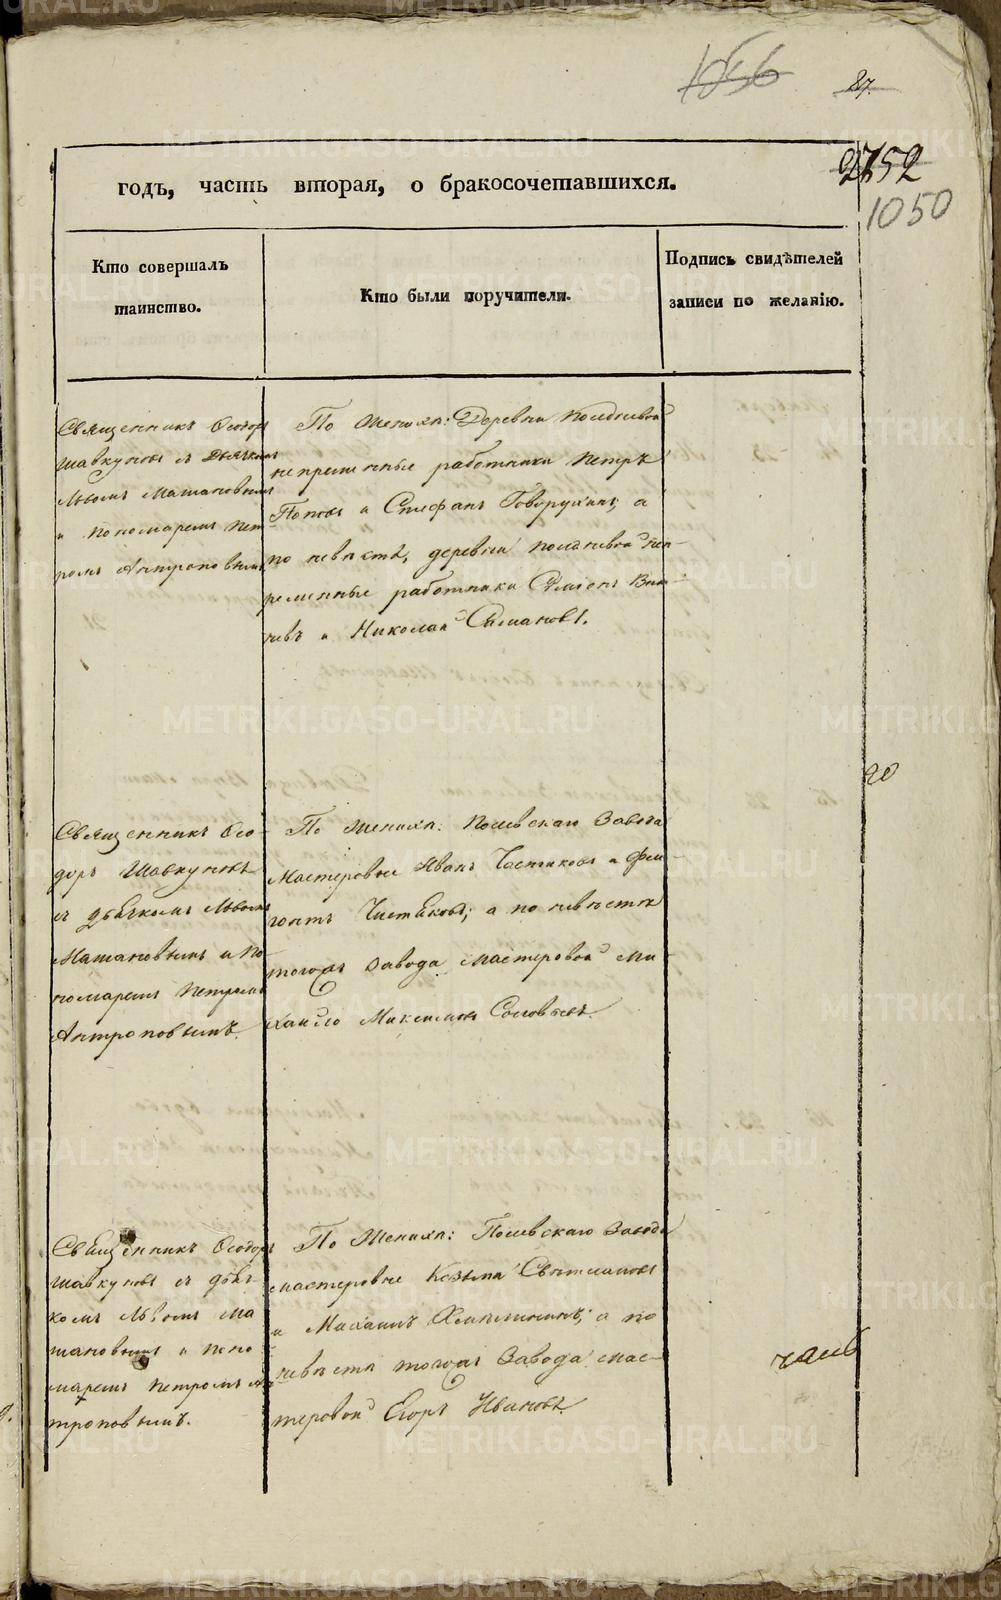 1056
87.
2152
1050
годъ, часть вторая, о бракосочетавшихся.
Кто совершалъ
таинство.
Кто были поручители.
Подпись свидѣтелей
записи по желанію.
Священникъ Ѳеодоръ
Шавкуновъ съ дьячкомъ
Львомъ Матановымъ
и пономаремъ Пет
ромъ Антроповымъ
По женихѣ: Деревни
непременные работники Петръ
Поповъ и Стефанъ Говорухинъ; а
по невѣстѣ, деревни неп-
ременные работники Симеонъ
и Николай
20
Священникъ Ѳео-
доръ Шавкуновъ
съ дьячкомъ Львомъ
Матановымъ и по-
номаремъ Петромъ
Антроповымъ.
По женихѣ: Полевскаго Завода
Мастеровые Иванъ Чистяковъ и
Чистяковъ; а по невѣстѣ
тогожъ Завода мастеровой Ми-
хайло Максимовъ Соловьевъ.
Священникъ Ѳеодоръ
Шавкуновъ съ дьяч-
комъ Львомъ Ма
тановымъ и поно-
маремъ Петромъ Ан
троповымъ.
По Женихѣ: Полевскаго Завода
мастеровые Козьма
и Михаилъ а по
невѣстѣ тогожъ Завода мас-
теровой Егоръ Ивановъ.
METRIKI.GASO-URAL.RU